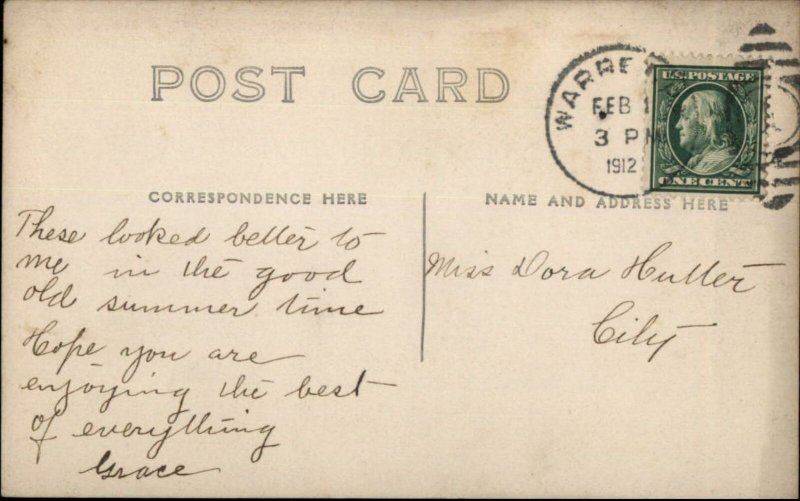 POST CARD
WARRE
FEB 1
3 PM
1912
U.S. POSTAGE
ONE CENT
CORRESPONDENCE HERE
NAME AND ADDRESS HERE
These looked better to
me in the good
old summer time
Hope you are
enjoying the best
of everything
Grace
Miss Dora Hutter
City